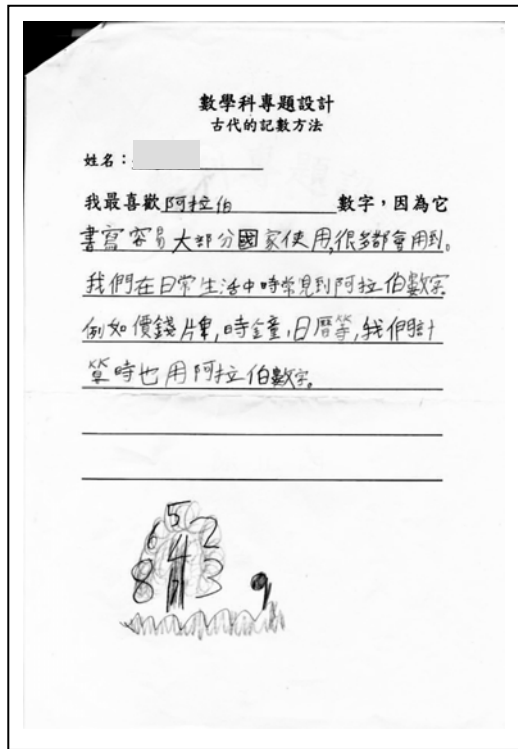 數學科專題設計
古代的記數方法
姓名:
我最喜歡阿拉伯數字,因為它
書寫容易大部分國家使用,很多都會用到。
我們在日常生活中時常見到阿拉伯數字
例如價錢牌,時鐘,日曆等,我們計
算時也用阿拉伯數字。
5
6 2
4
8 3
9